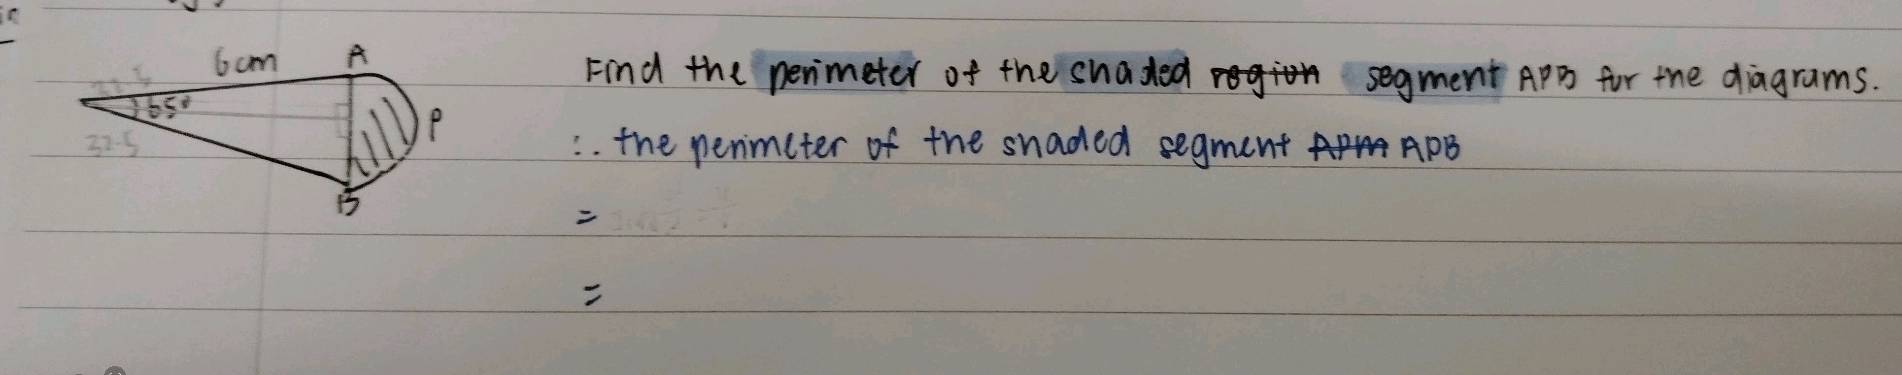 6cm A
Find the perimeter of the shaded region segment APB for the diagrams.
65° P
32.5
∴ the perimeter of the shaded segment APM APB
B
=
=